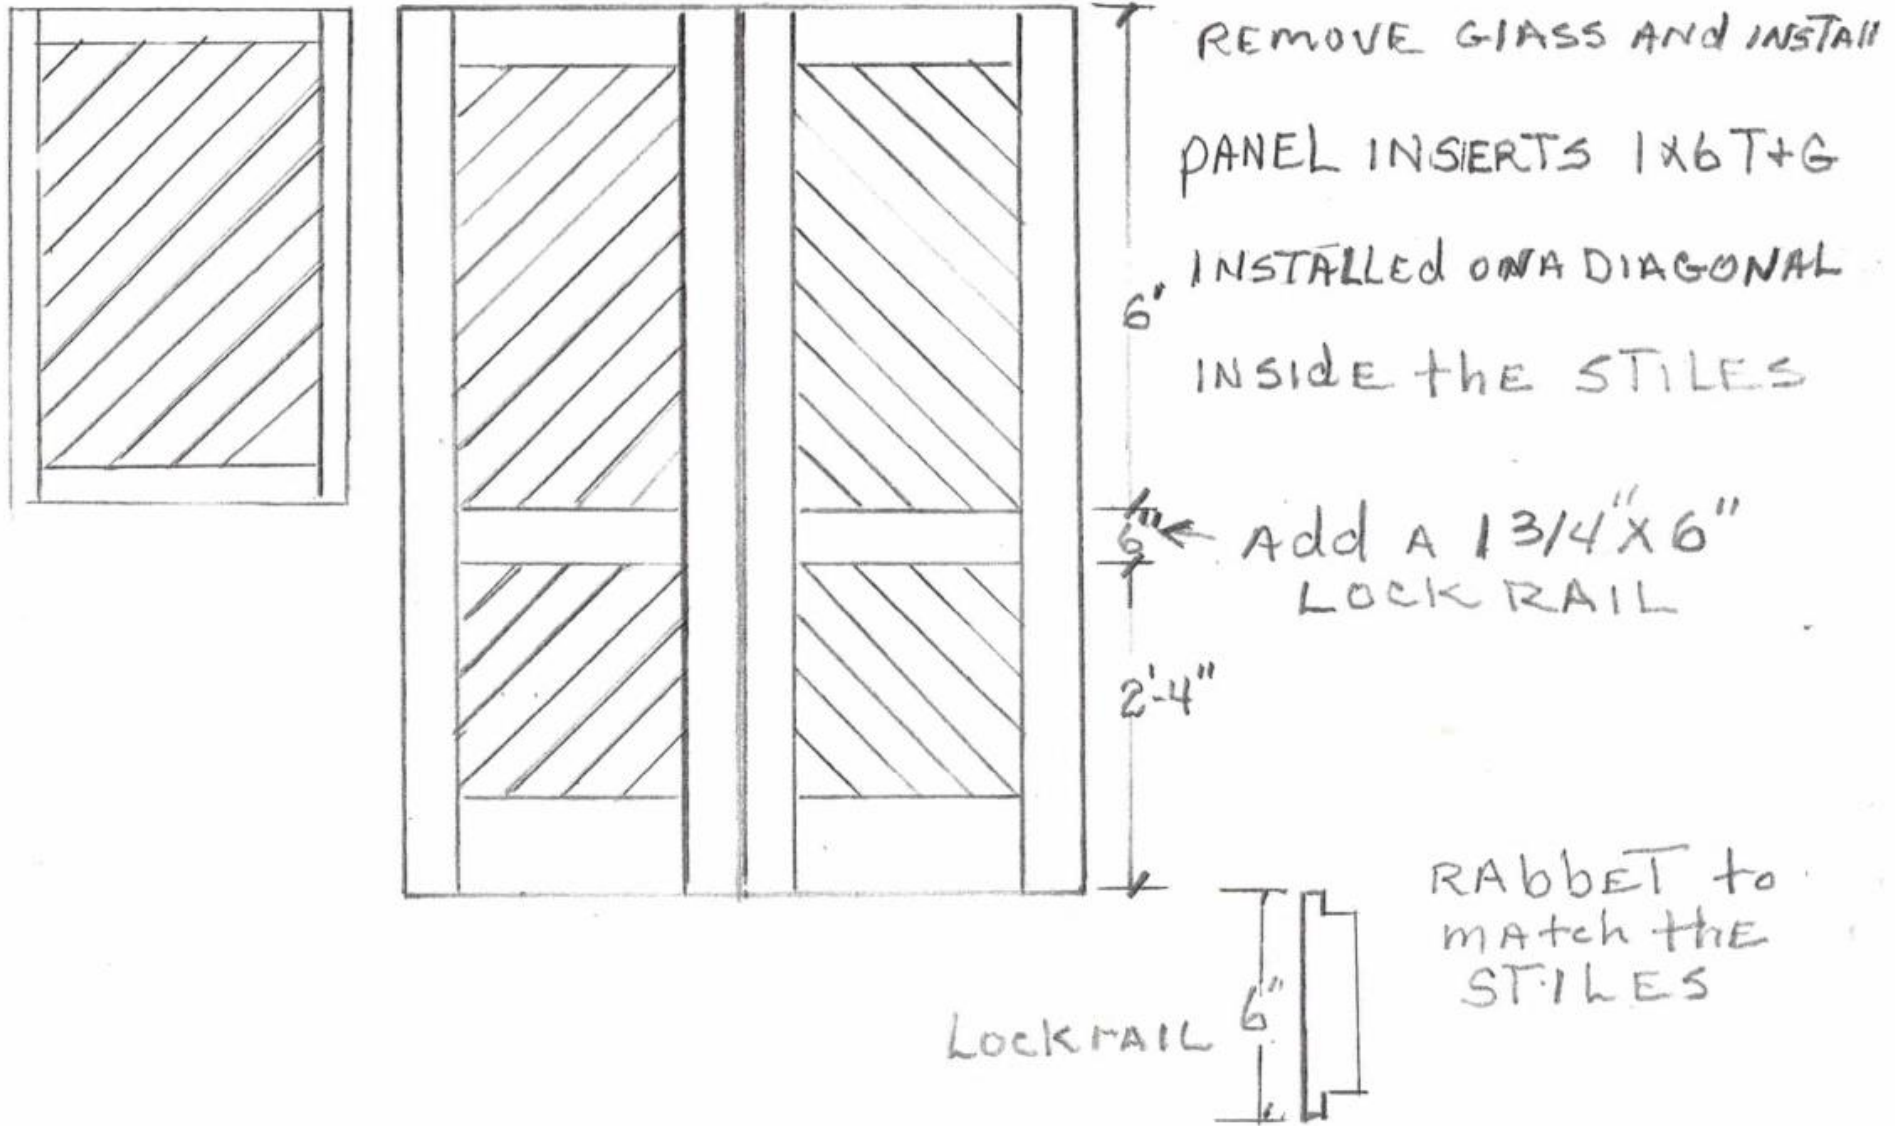 REMOVE GlASS ANd INSTAll
PANEL INSERTS 1X6 T+G
INSTALLEd ON A DIAGONAL
INSIdE thE STiLES
6'
6"
Add A 1 3/4" X 6"
LOCK RAIL
2'-4"
RAbbET to
mAtch thE
STILES
6"
LockrAIL